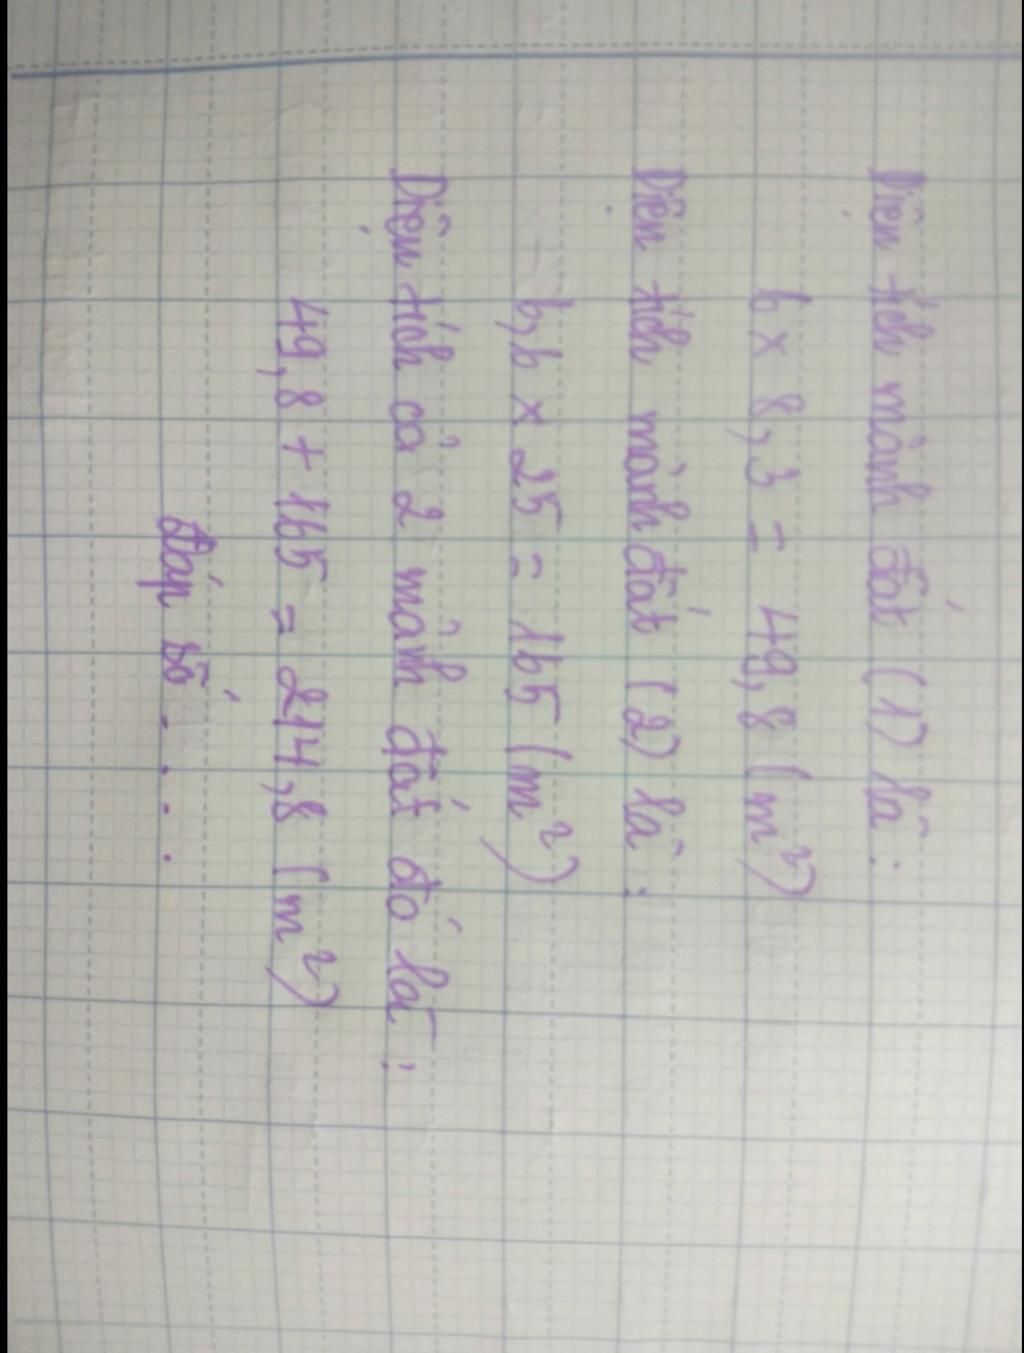 Diện tích mảnh đất (1) là :
6 x 8,3 = 49,8 (m²)
Diện tích mảnh đất (2) là :
6,6 x 25 = 165 (m²)
Diện tích cả 2 mảnh đất đó là :
49,8 + 165 = 214,8 (m²)
Đáp số . . . .